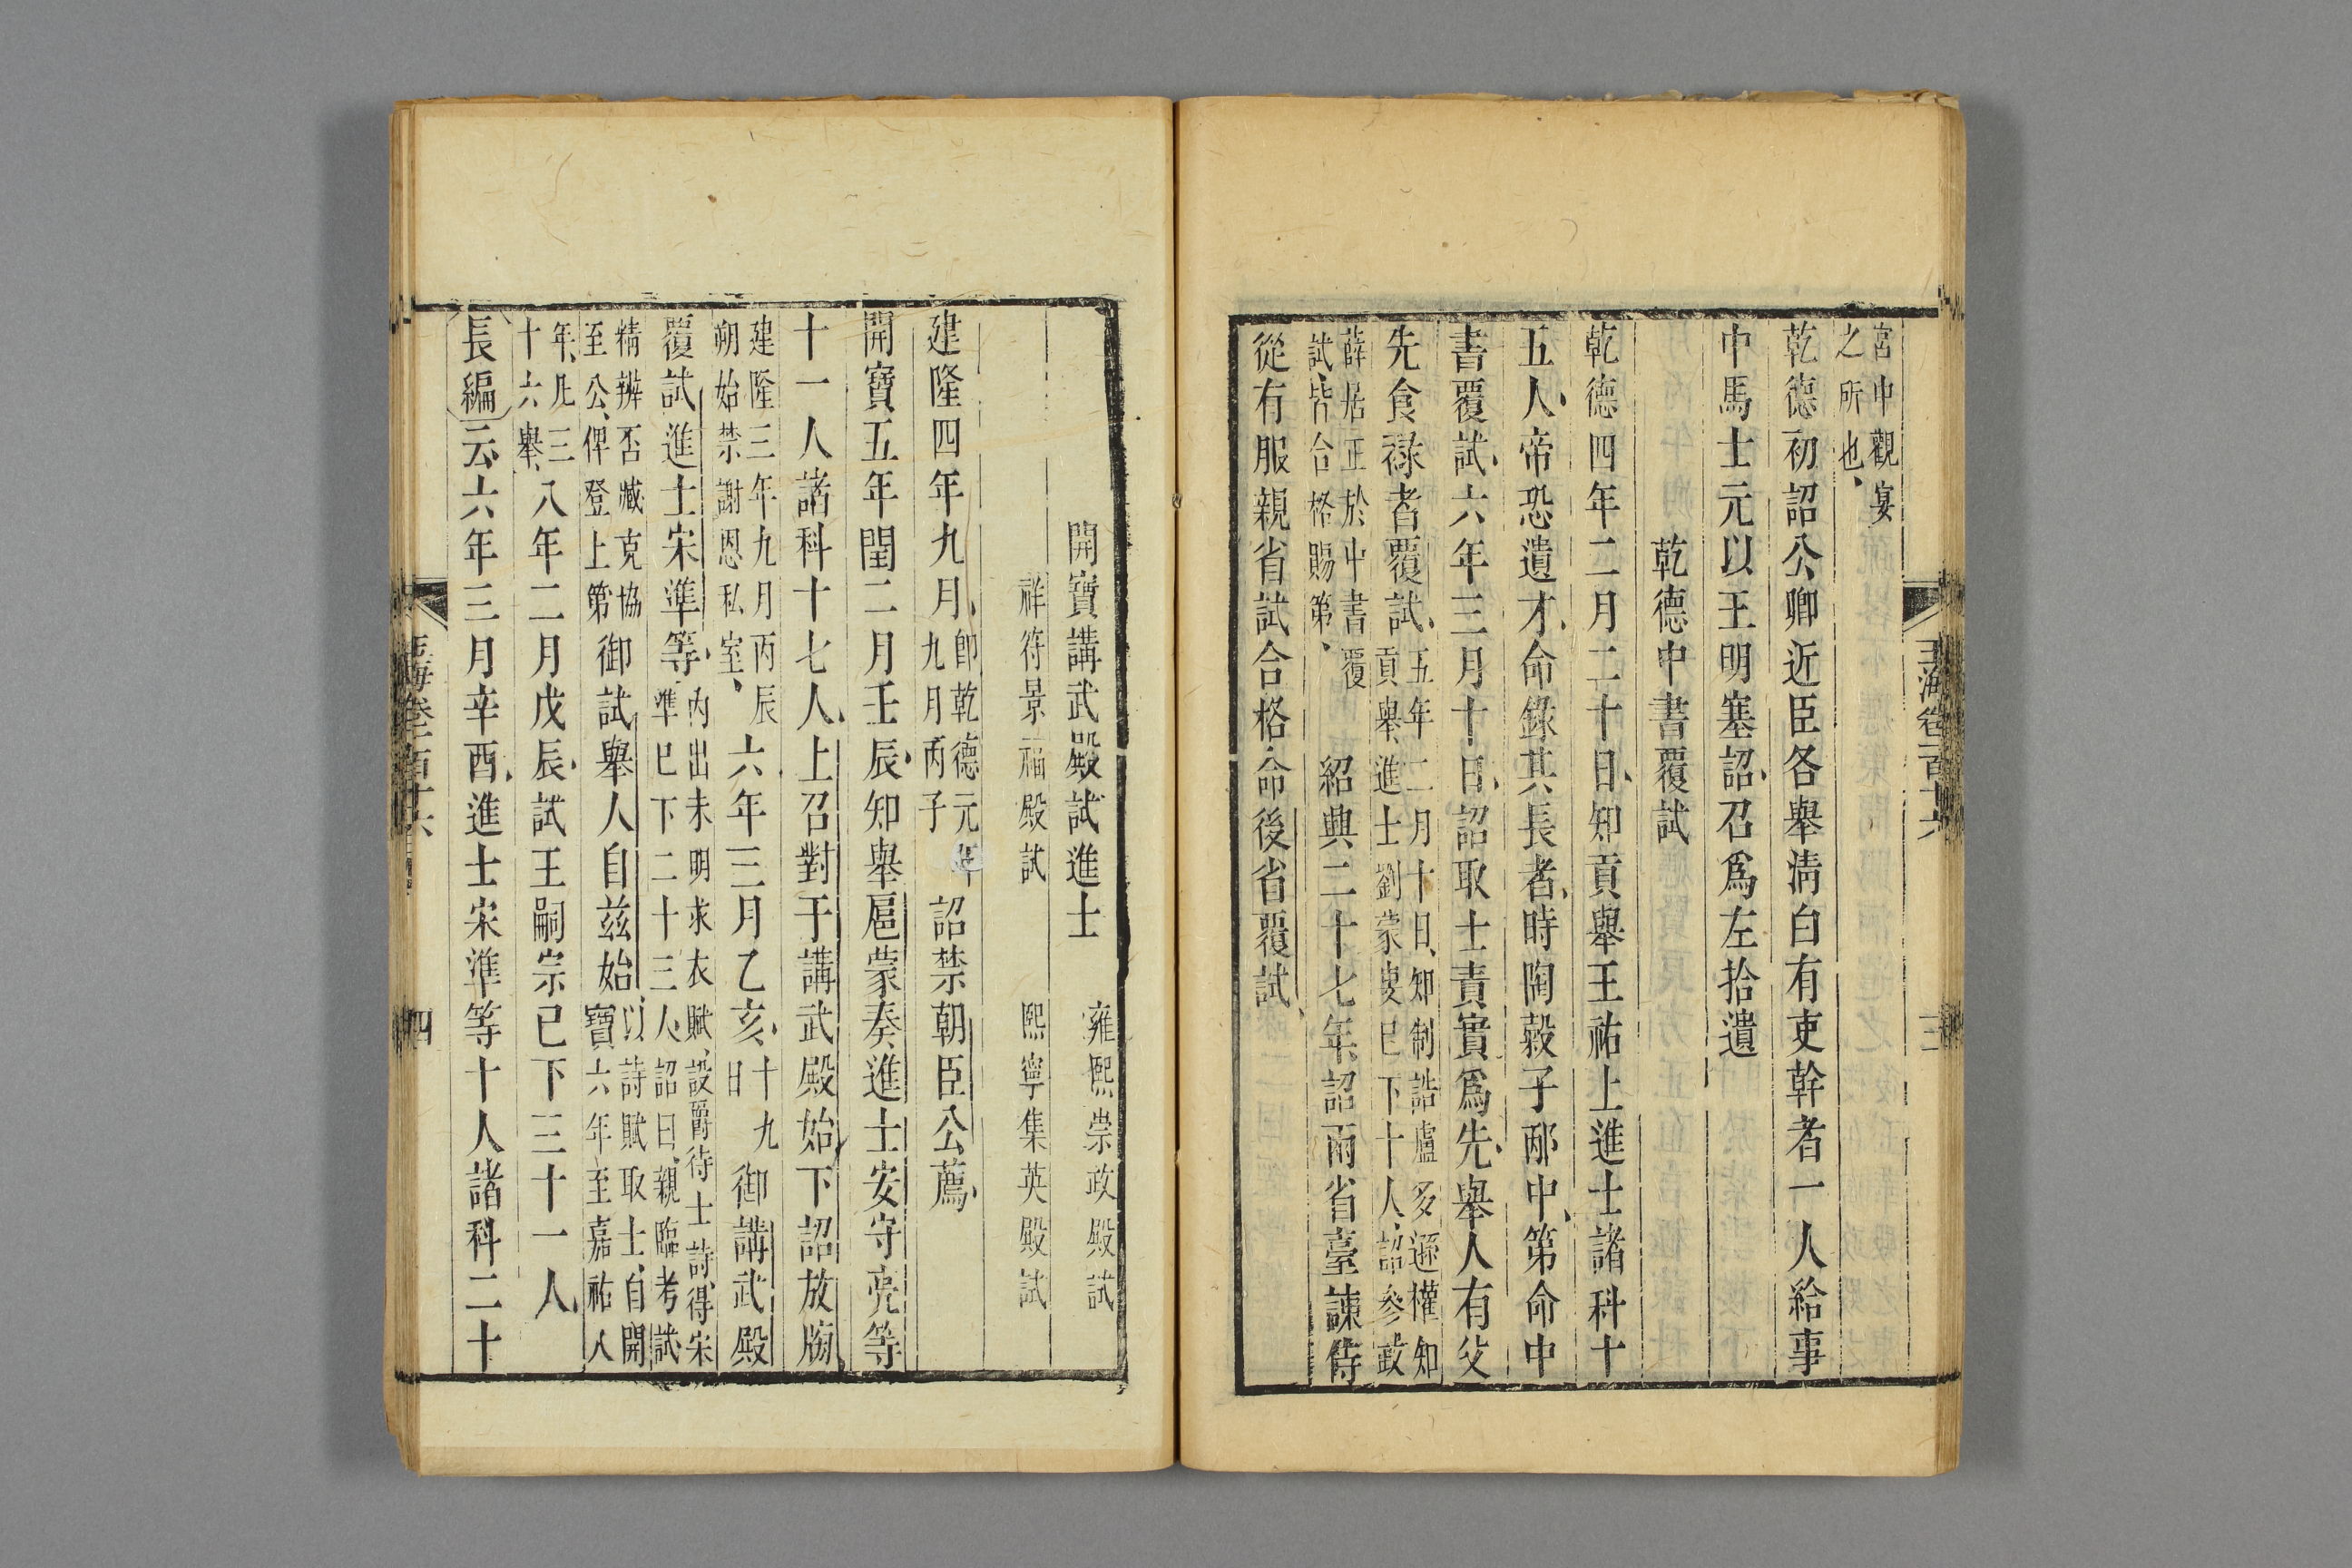 宮中觀宴
之所也
乾德初詔公卿近臣各舉淸白有吏幹者一人給事
中馬士元以王明塞詔召爲左拾遺
乾德中書覆試
乾德四年二月二十日知貢舉王祐上進士諸科十
五人帝恐遺才命錄其長者時陶穀子邴中第命中
書覆試六年三月十日詔取士責實爲先舉人有父
先食祿者覆試
五年二月十日知制誥盧多遜權知
貢舉進士劉蒙叟已下十人詔參政
薛居正於中書覆
試皆合格賜第
紹興二十七年詔兩省臺諫侍
從有服親省試合格命後省覆試
玉海卷一百十六
三
開寶講武殿試進士
雍熙崇政殿試
祥符景福殿試
熙寧集英殿試
建隆四年九月
卽乾德元年
九月丙子
詔禁朝臣公薦
開寶五年閏二月壬辰知舉扈蒙奏進士安守亮等
十一人諸科十七人上召對于講武殿始下詔放牓
建隆三年九月丙辰
朔始禁謝恩私室
六年三月乙亥
十九
日
御講武殿
覆試進士宋準等
內出未明求衣賦設爵待士詩得宋
準已下二十三人詔曰親臨考試
精辨否臧克協
至公俾登上第
御試舉人自兹始
以詩賦取士自開
寶六年至嘉祐八
年凡三
十六舉
八年二月戊辰試王嗣宗已下三十一人
長編云六年三月辛酉進士宋準等十人諸科二十
玉海卷一百十六
四